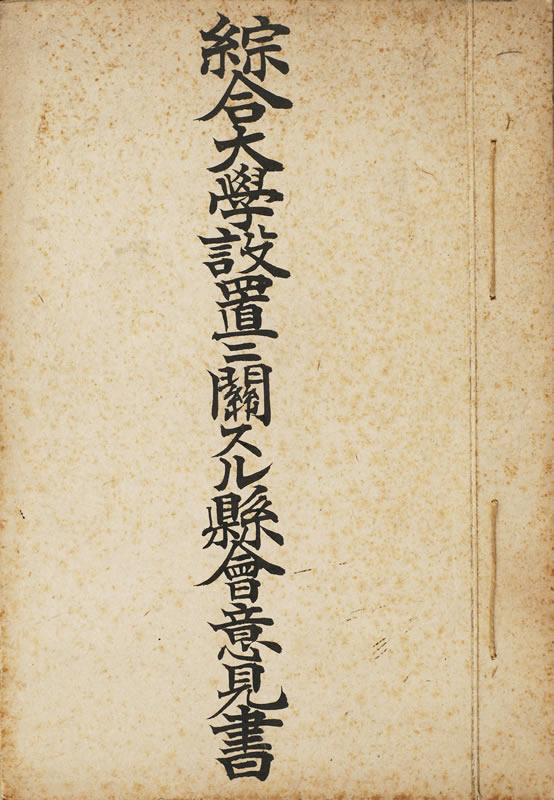 綜合大學設置ニ關スル縣會意見書